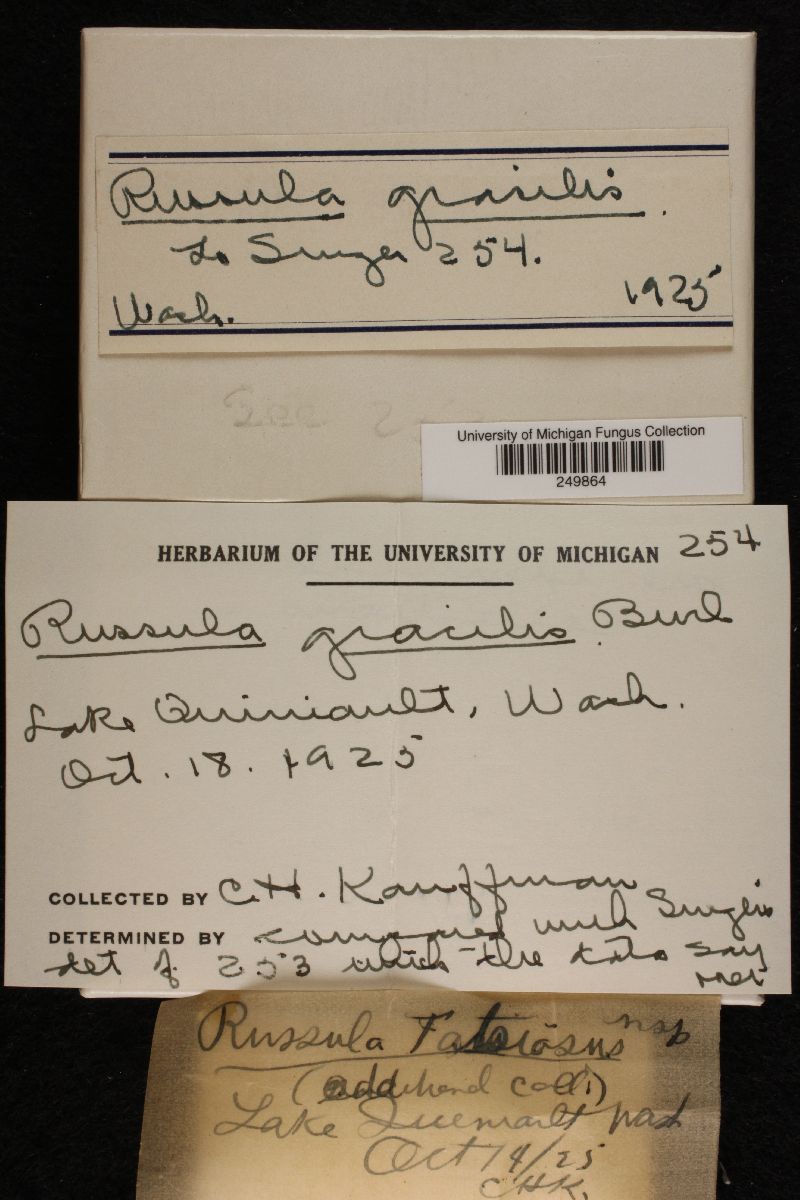 Russula gracilis.
to Singer 254.
Wash. 1925
University of Michigan Fungus Collection
249864
HERBARIUM OF THE UNIVERSITY OF MICHIGAN 254
Russula gracilis Burl
Lake Quiniault, Wash.
Oct. 18. 1925
COLLECTED BY C.H. Kauffman
DETERMINED BY compared with Singer's
det of 253 which the data say
Russula nsp
(add hend coll.)
Lake Wash
Oct 14/25
CHK.